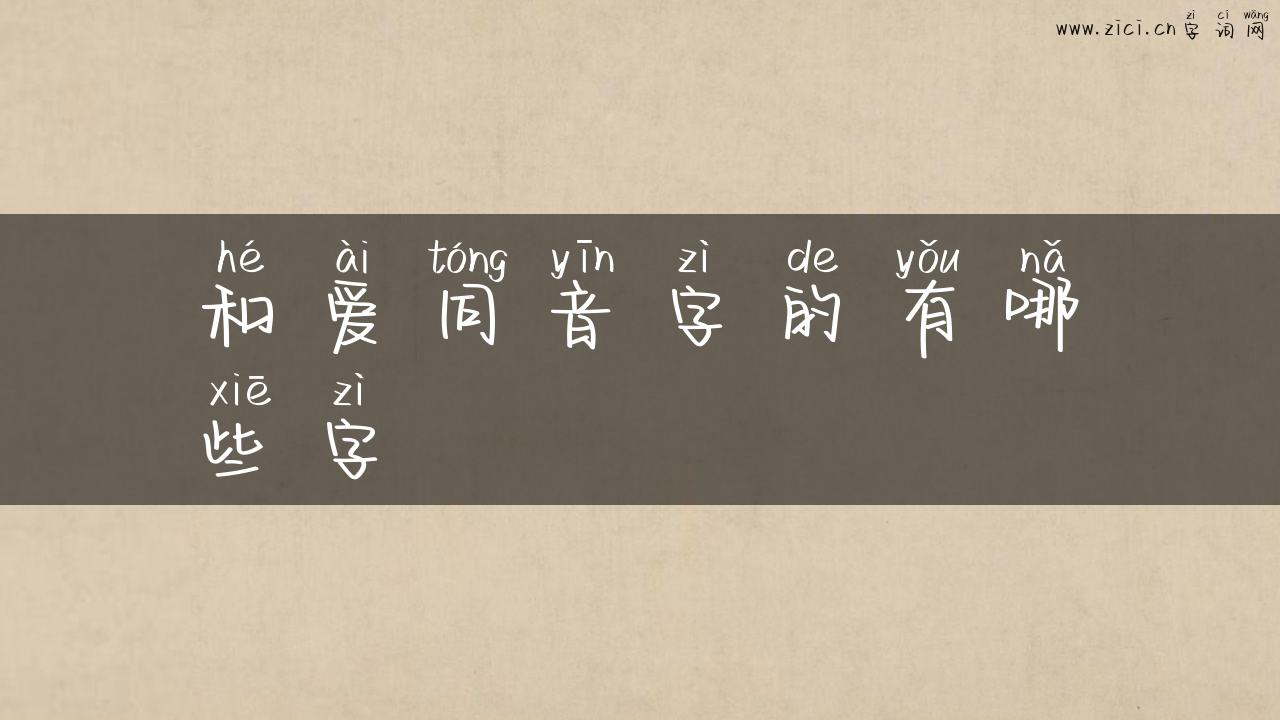 zì cí wǎng
www.zici.cn 字 词 网
hé ài tóng yīn zì de yǒu nǎ
和 爱 同 音 字 的 有 哪
xiē zì
些 字